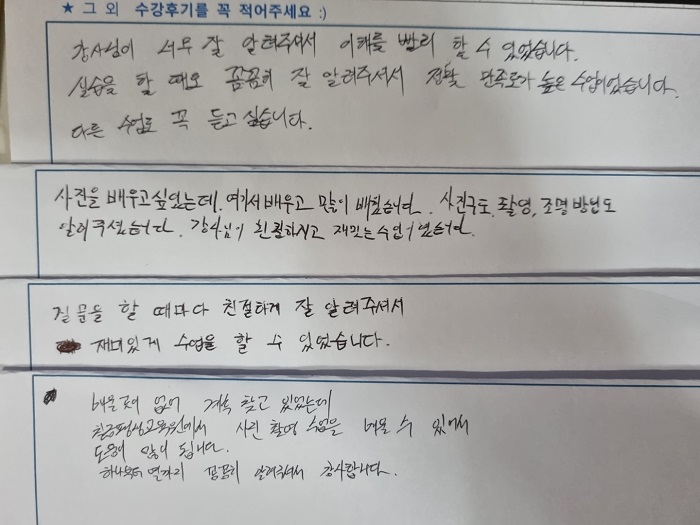 ★ 그 외 수강후기를 꼭 적어주세요 :)
강사님이 너무 잘 알려주셔서 이해를 빨리 할 수 있었습니다.
실습을 할 때도 꼼꼼히 잘 알려주셔서 정말 만족도가 높은 수업이었습니다.
다른 수업도 꼭 듣고 싶습니다.
사진을 배우고 싶었는데, 여기서 배우고 많이 배웠습니다. 사진구도, 촬영, 조명 방법도
알려주셨습니다. 강사님이 친절하시고 재밌는 수업이었습니다.
질문을 할 때마다 친절하게 잘 알려주셔서
재미있게 수업을 할 수 있었습니다.
배울 곳이 없어 계속 찾고 있었는데
사진 촬영 수업을 배울 수 있어서
도움이 많이 됩니다.
하나부터 열까지 꼼꼼히 알려주셔서 감사합니다.